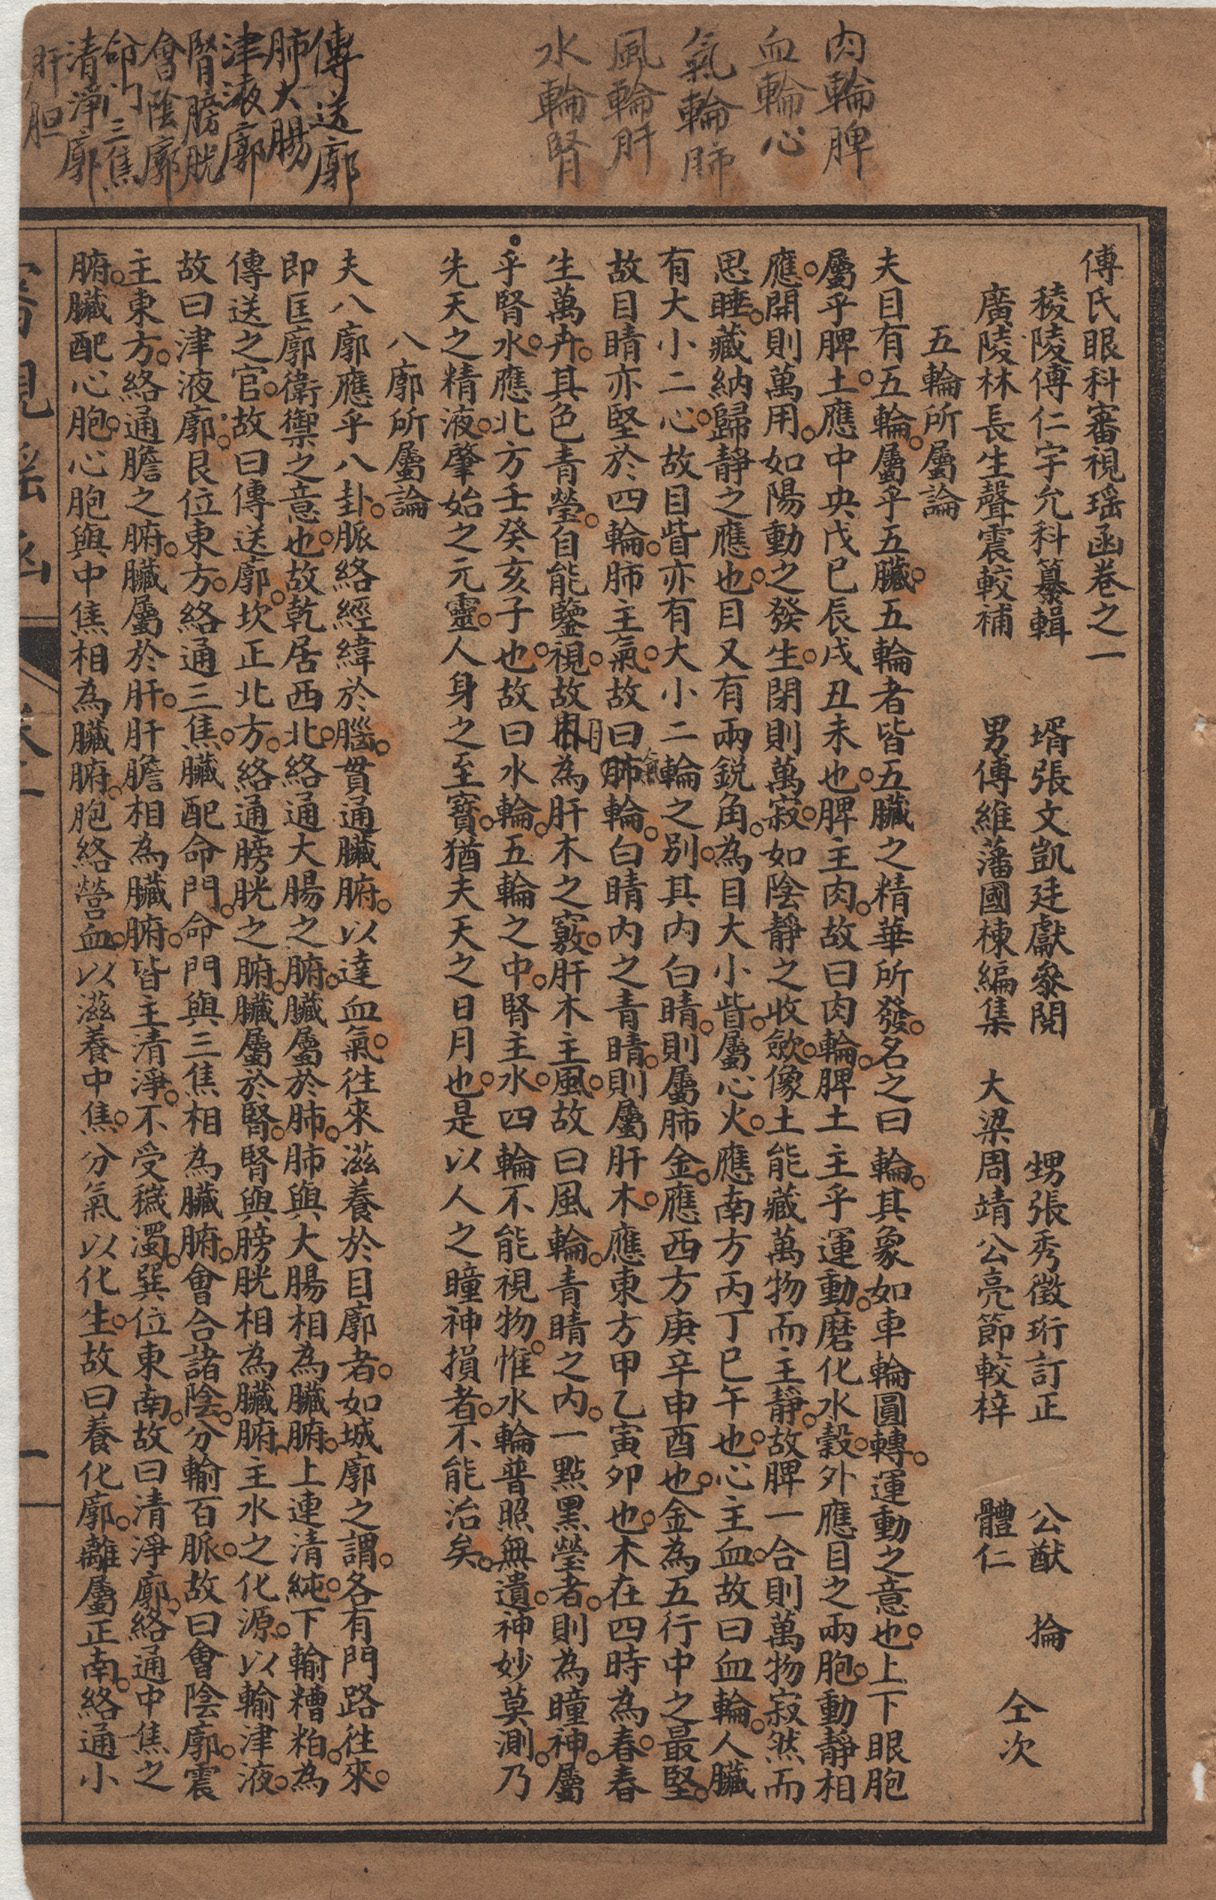 肉輪脾
血輪心
氣輪肺
風輪肝
水輪腎
傳送廓
肺大腸
津液廓
腎膀胱
會陰廓
命門三焦
清淨廓
肝胆
傅氏眼科審視瑶函卷之一
稜陵傅仁宇允科纂輯 壻張文凱廷獻叅閱 甥張秀徵珩訂正 公猷 掄
廣陵林長生聲震較補 男傅維藩國棟編集 大梁周靖公亮節較梓 體仁
仝次
五輪所屬論
夫目有五輪。屬乎五臟。五輪者皆五臟之精華所發。名之曰輪。其象如車輪圓轉。運動之意也。上下眼胞
屬乎脾。土應中央戊巳辰戌丑未也。脾主肉。故曰肉輪。脾土主乎運動。磨化水穀。外應目之兩胞。動靜相
應。開則萬用。如陽動之發生。閉則萬寂。如陰靜之收歛。像土能藏萬物而主靜。故脾一合則萬物寂然而
思睡。藏納歸靜之應也。目又有兩銳角。為目大小眥。屬心火。應南方丙丁巳午也。心主血。故曰血輪。人臟
有大小二心。故目眥亦有大小二輪之別。其內白睛。則屬肺金。應西方庚辛申酉也。金為五行中之最堅。
故目睛亦堅於四輪。肺主氣。故曰肺輪。白睛內之青睛。則屬肝木。應東方甲乙寅夘也。木在四時為春。春
生萬卉。其色青瑩。自能鑒視。故目為肝木之竅。肝木主風。故曰風輪。青睛之內。一點黑瑩者。則為瞳神。屬
乎腎。水應北方壬癸亥子也。故曰水輪。五輪之中。腎主水。四輪不能視物。惟水輪普照無遺。神妙莫測。乃
先天之精液。肇始之元靈。人身之至寶。猶夫天之日月也。是以人之瞳神損者。不能治矣。
八廓所屬論
夫八廓應乎八卦。脈絡經緯於腦。貫通臟腑。以達血氣。往來滋養於目廓者。如城廓之謂。各有門路往來。
即匡廓衛禦之意也。故乾居西北。絡通大腸之腑。臟屬於肺。肺與大腸相為臟腑。上連清純。下輸糟粕。為
傳送之官。故曰傳送廓。坎正北方。絡通膀胱之腑。臟屬於腎。腎與膀胱相為臟腑。主水之化源。以輸津液。
故曰津液廓。艮位東方。絡通三焦。臟配命門。命門與三焦相為臟腑。會合諸陰。分輸百脈。故曰會陰廓。震
主東方。絡通膽之腑。臟屬於肝。肝膽相為臟腑。皆主清淨。不受穢濁。巽位東南。故曰清淨廓。絡通中焦之
腑。臟配心胞。心胞與中焦相為臟腑。胞絡營血。以滋養中焦。分氣以化生。故曰養化廓。離屬正南。絡通小